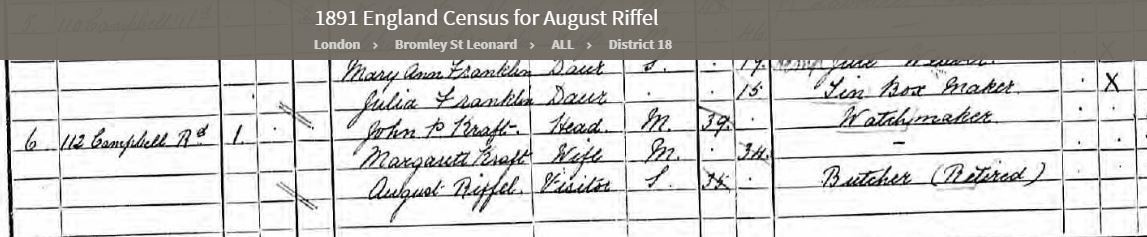 1891 England Census for August Riffel
London > Bromley St Leonard > ALL > District 18
Mary Ann Franklin Daur S. 19 Jute Weaver
Julia Franklin Daur 15 Tin Box Maker X
6 112 Campbell Rd 1. John P Kraft Head M. 39 Watchmaker
Margarett Kraft Wife M. 34 -
August Riffel Visitor S. Butcher (Retired)